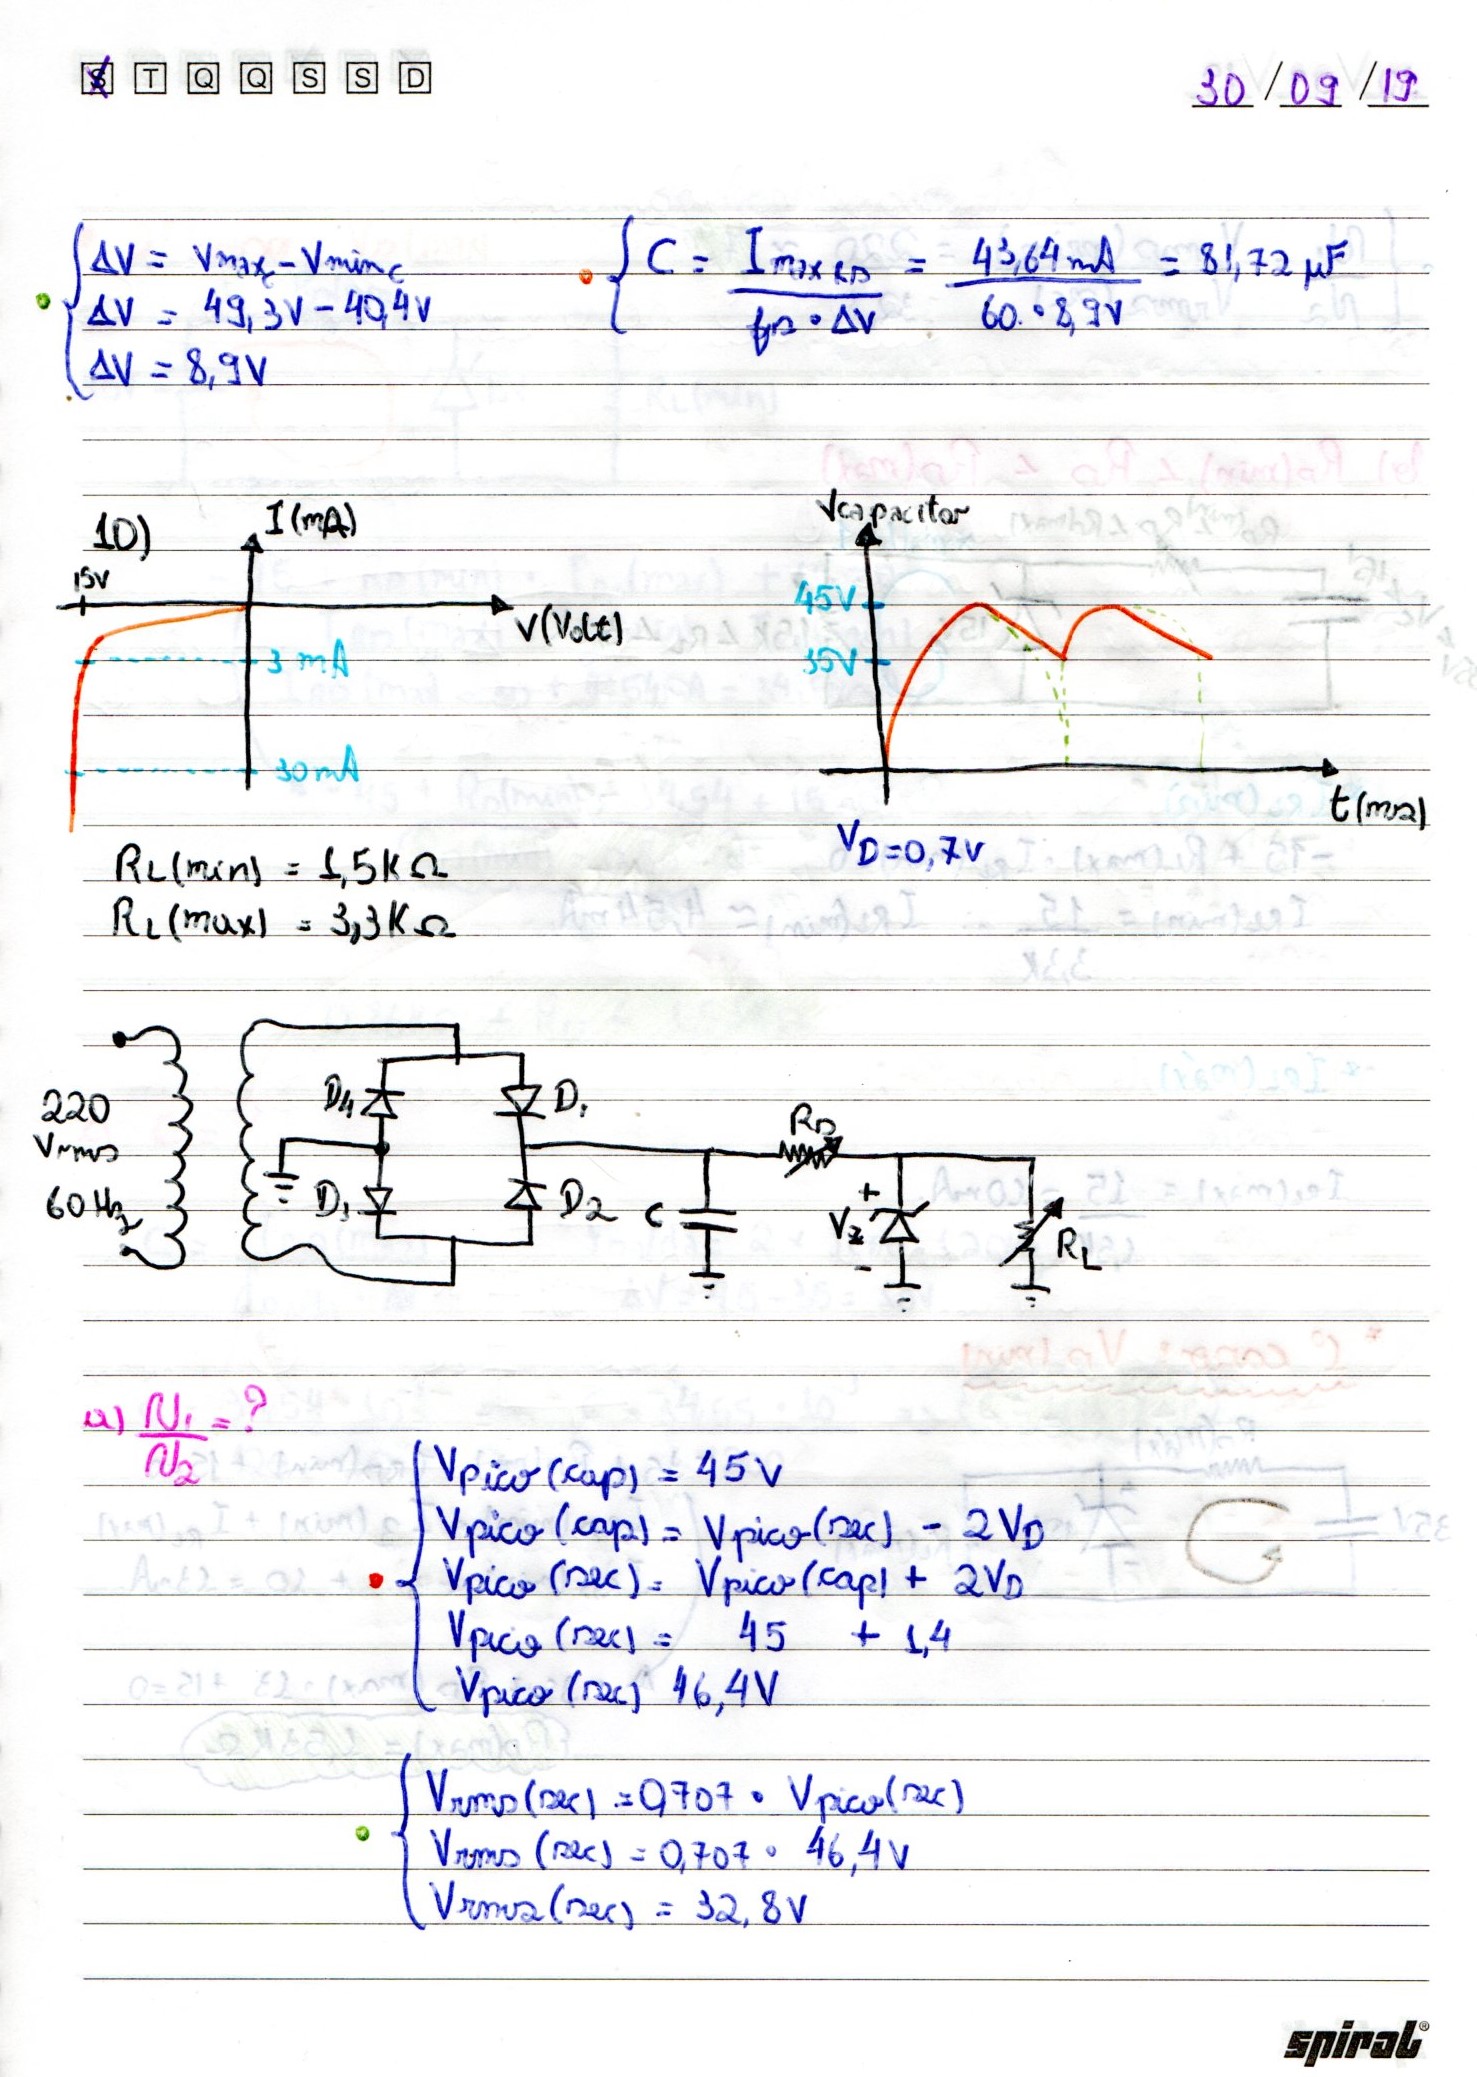 S T Q Q S S D
30/09/19
ΔV = Vmaxc - Vminc
ΔV = 49,3V - 40,4V
ΔV = 8,9V
C = Imax RD / fm · ΔV = 43,64mA / 60. · 8,9V = 81,72 μF
10)
I(mA)
15V
V(Volt)
3 mA
30mA
Vcapacitor
45V
35V
t(ms)
VD=0,7V
RL(min) = 1,5KΩ
RL(max) = 3,3KΩ
220
Vrms
60Hz
D4
D1
D3
D2
C
RD
+
Vz
-
RL
a) N1/N2 = ?
Vpico(cap) = 45V
Vpico(cap) = Vpico(sec) - 2VD
Vpico(sec) = Vpico(cap) + 2VD
Vpico(sec) = 45 + 1,4
Vpico(sec) 46,4V
Vrms(sec) = 0,707 · Vpico(sec)
Vrms(sec) = 0,707 · 46,4V
Vrms(sec) = 32,8V
spiral®